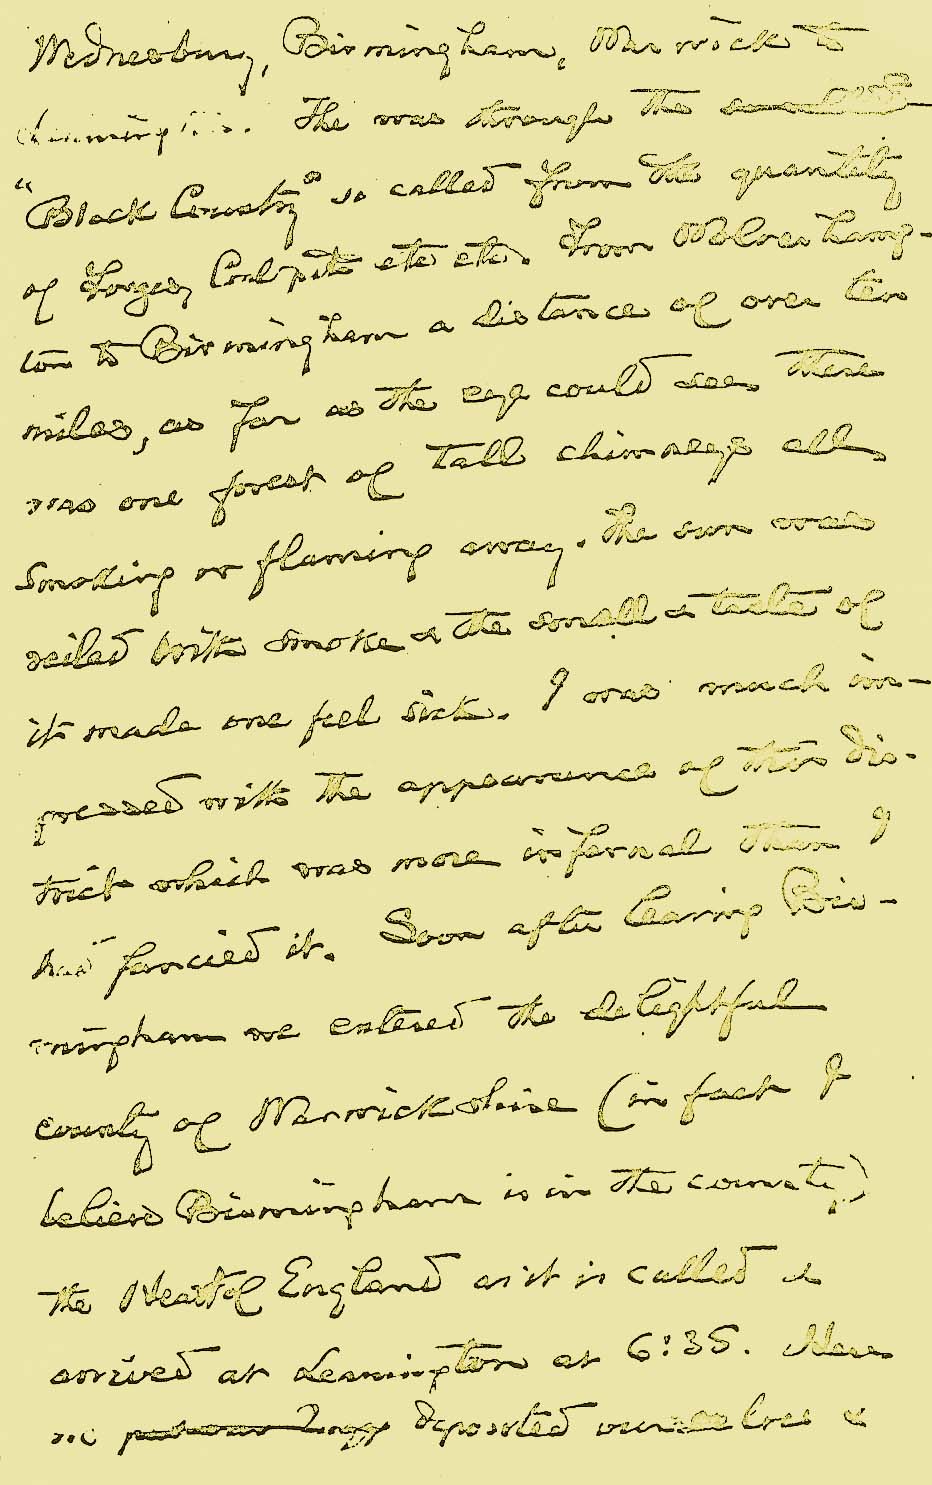 Wednesbury, Birmingham, Warwick to
Leamington. The was through the
"Black Country" so called from the quantity
of Forges, Coalpits etc etc. From Wolverhamp-
ton to Birmingham a distance of over ten
miles, as far as the eye could see there
was one forest of tall chimneys all
smoking or flaming away. The sun was
veiled with smoke & the smell & taste of
it made one feel sick. I was much im-
pressed with the appearance of this dis-
trict which was more infernal than I
had fancied it. Soon after leaving Bir-
mingham we entered the delightful
county of Warwickshire (in fact I
believe Birmingham is in the county)
the Heart of England as it is called &
arrived at Leamington at 6:35. Here
we put our lugg deposited ourselves &